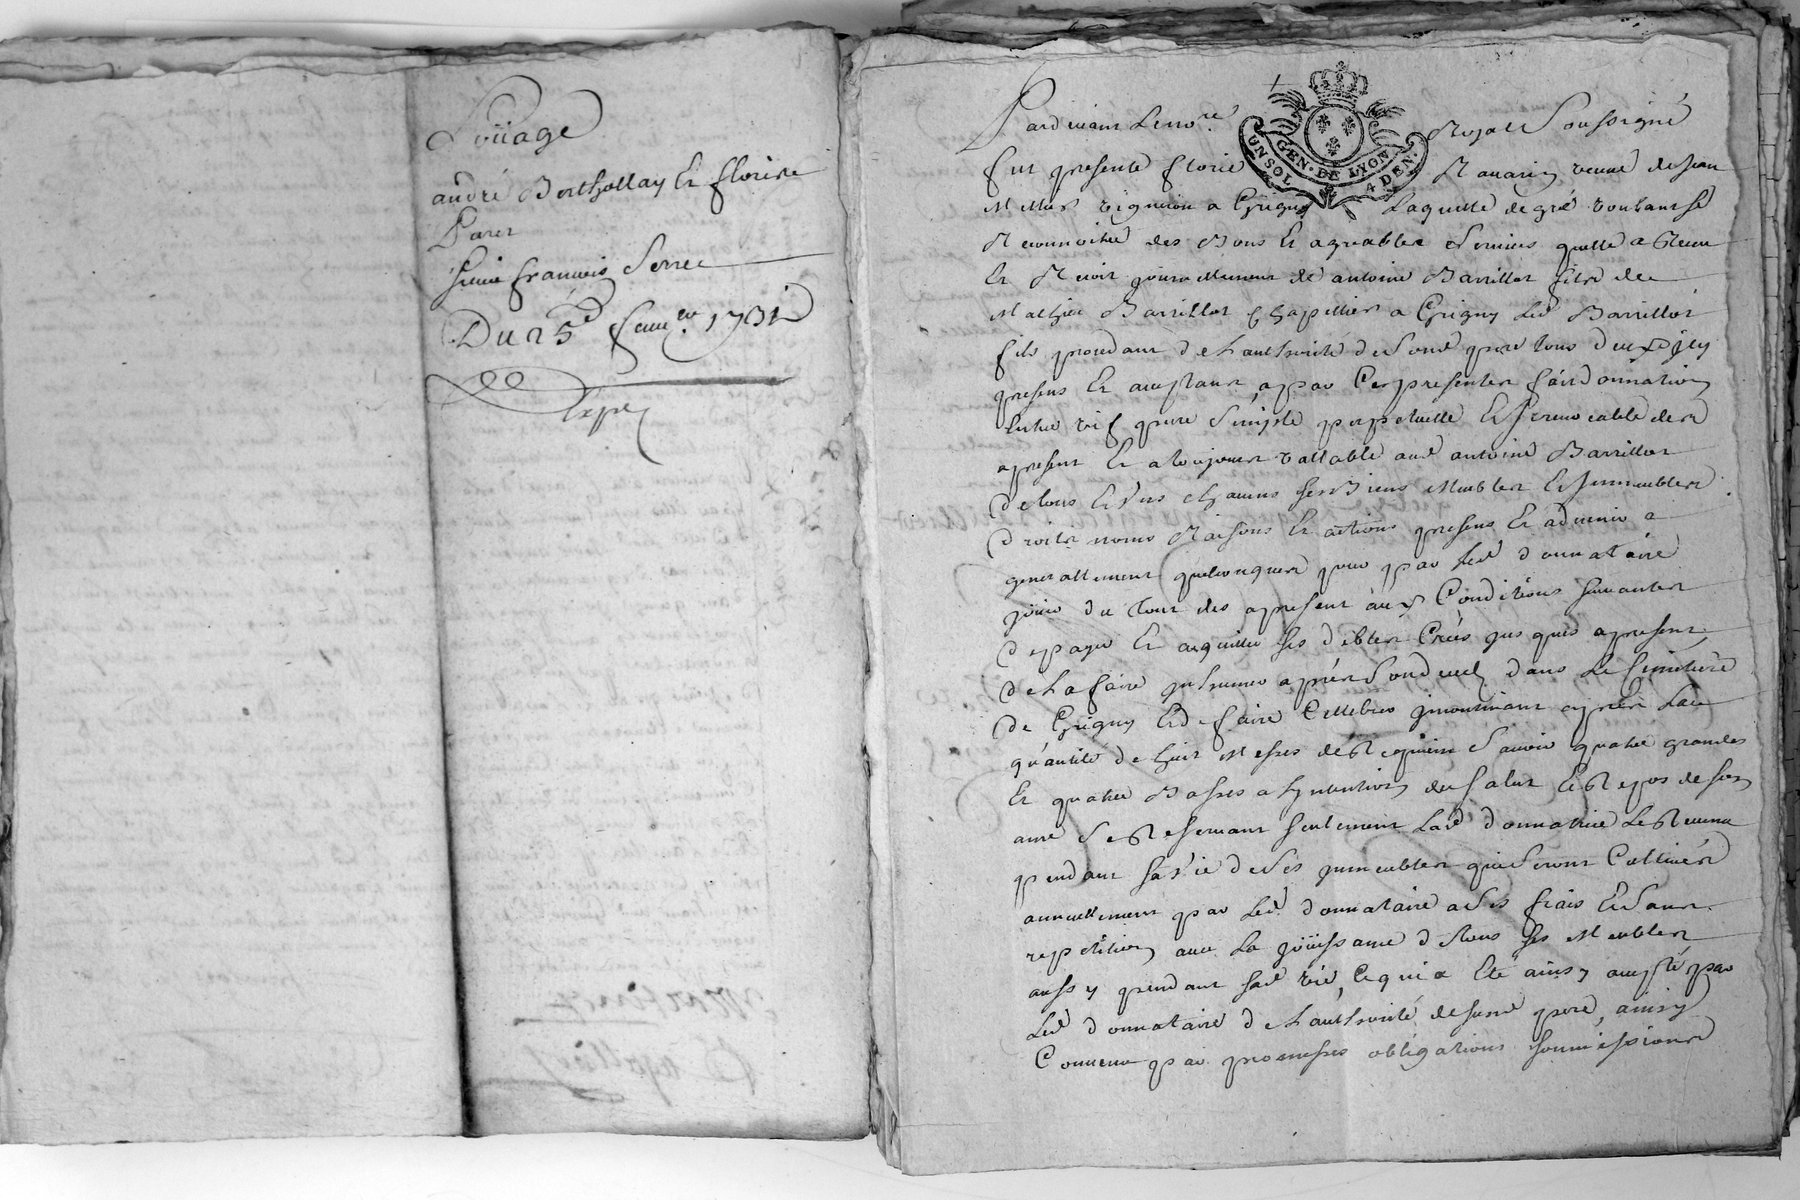 Loüage
andré Berthollay Et florise
Paret
sieur francois Serre
Du 25e Janv.er 1731
Expé
Pardevant Le no.re Royal Soussigné
UN SOL GEN. DE LYON 4 DEN.
fut presente florie Navarin veuve de Jean
vigneron a Grigny Laquelle de gré voulant se
Reconnoitre des Bons Et agreables Services quelle a Receu
Et Recoit journellement de antoine Barrillot fils de
Mathieu Barrillot Chapellier a Grigny Led Barrillot
fils procedant de L'authorité de Sond pere tous deux jcy
presens Et acceptant, a par Ces presentes fait donnation
Entre vif pure Simple perpetuelle Et Jrrevocable dez a
apresent Et a toujours vallable aud antoine Barrillot
de tous Et uns chacuns ses Biens Meubles Et Jmmeubles
droits noms Raisons Et actions presens Et advenir a
generallement quelconques pour par Led donnataire
jouir du tout des apresent aux Conditions suivantes
de payer Et acquitter ses debtes Créés jusques apresent,
de La faire jnhumer après Son deced dans Le Simetiere
de Grigny Et de faire Cellebrer jncontinant après La
quantité de huit Messes de Requiem Savoir quatre grandes
Et quatre Basses a Lyntention du salut Et Repos de son
ame Se Reservant seulement Lad donnatrice Le Revenu
pendant sa vie de Ses jmmeubles qui Seront Cultivés
annuellement par Led donnataire a Ses frais Et Sans
repetition avec La joüissance de tous ses Meubles
aussy pendant sad vie, Ce qui a Eté ainsy accepté par
Led donnataire de L'authorité de sond pere, ainsy
Convenu par promesses obligations soumissions